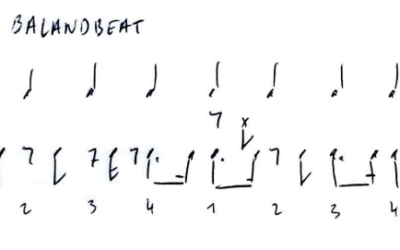 BALANDBEAT
2 3 4 1 2 3 4